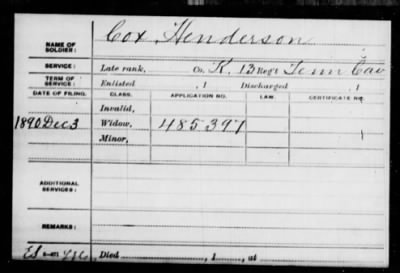 Cox, Henderson
NAME OF SOLDIER:
SERVICE: Late rank, Co. K, 13 Reg't Tenn Cav
TERM OF SERVICE: Enlisted , 1 Discharged , 1
DATE OF FILING. CLASS. APPLICATION NO. LAW. CERTIFICATE NO.
Invalid,
1890 Dec 3 Widow, 485397
Minor,
ADDITIONAL SERVICES:
REMARKS:
Died , 1 , at